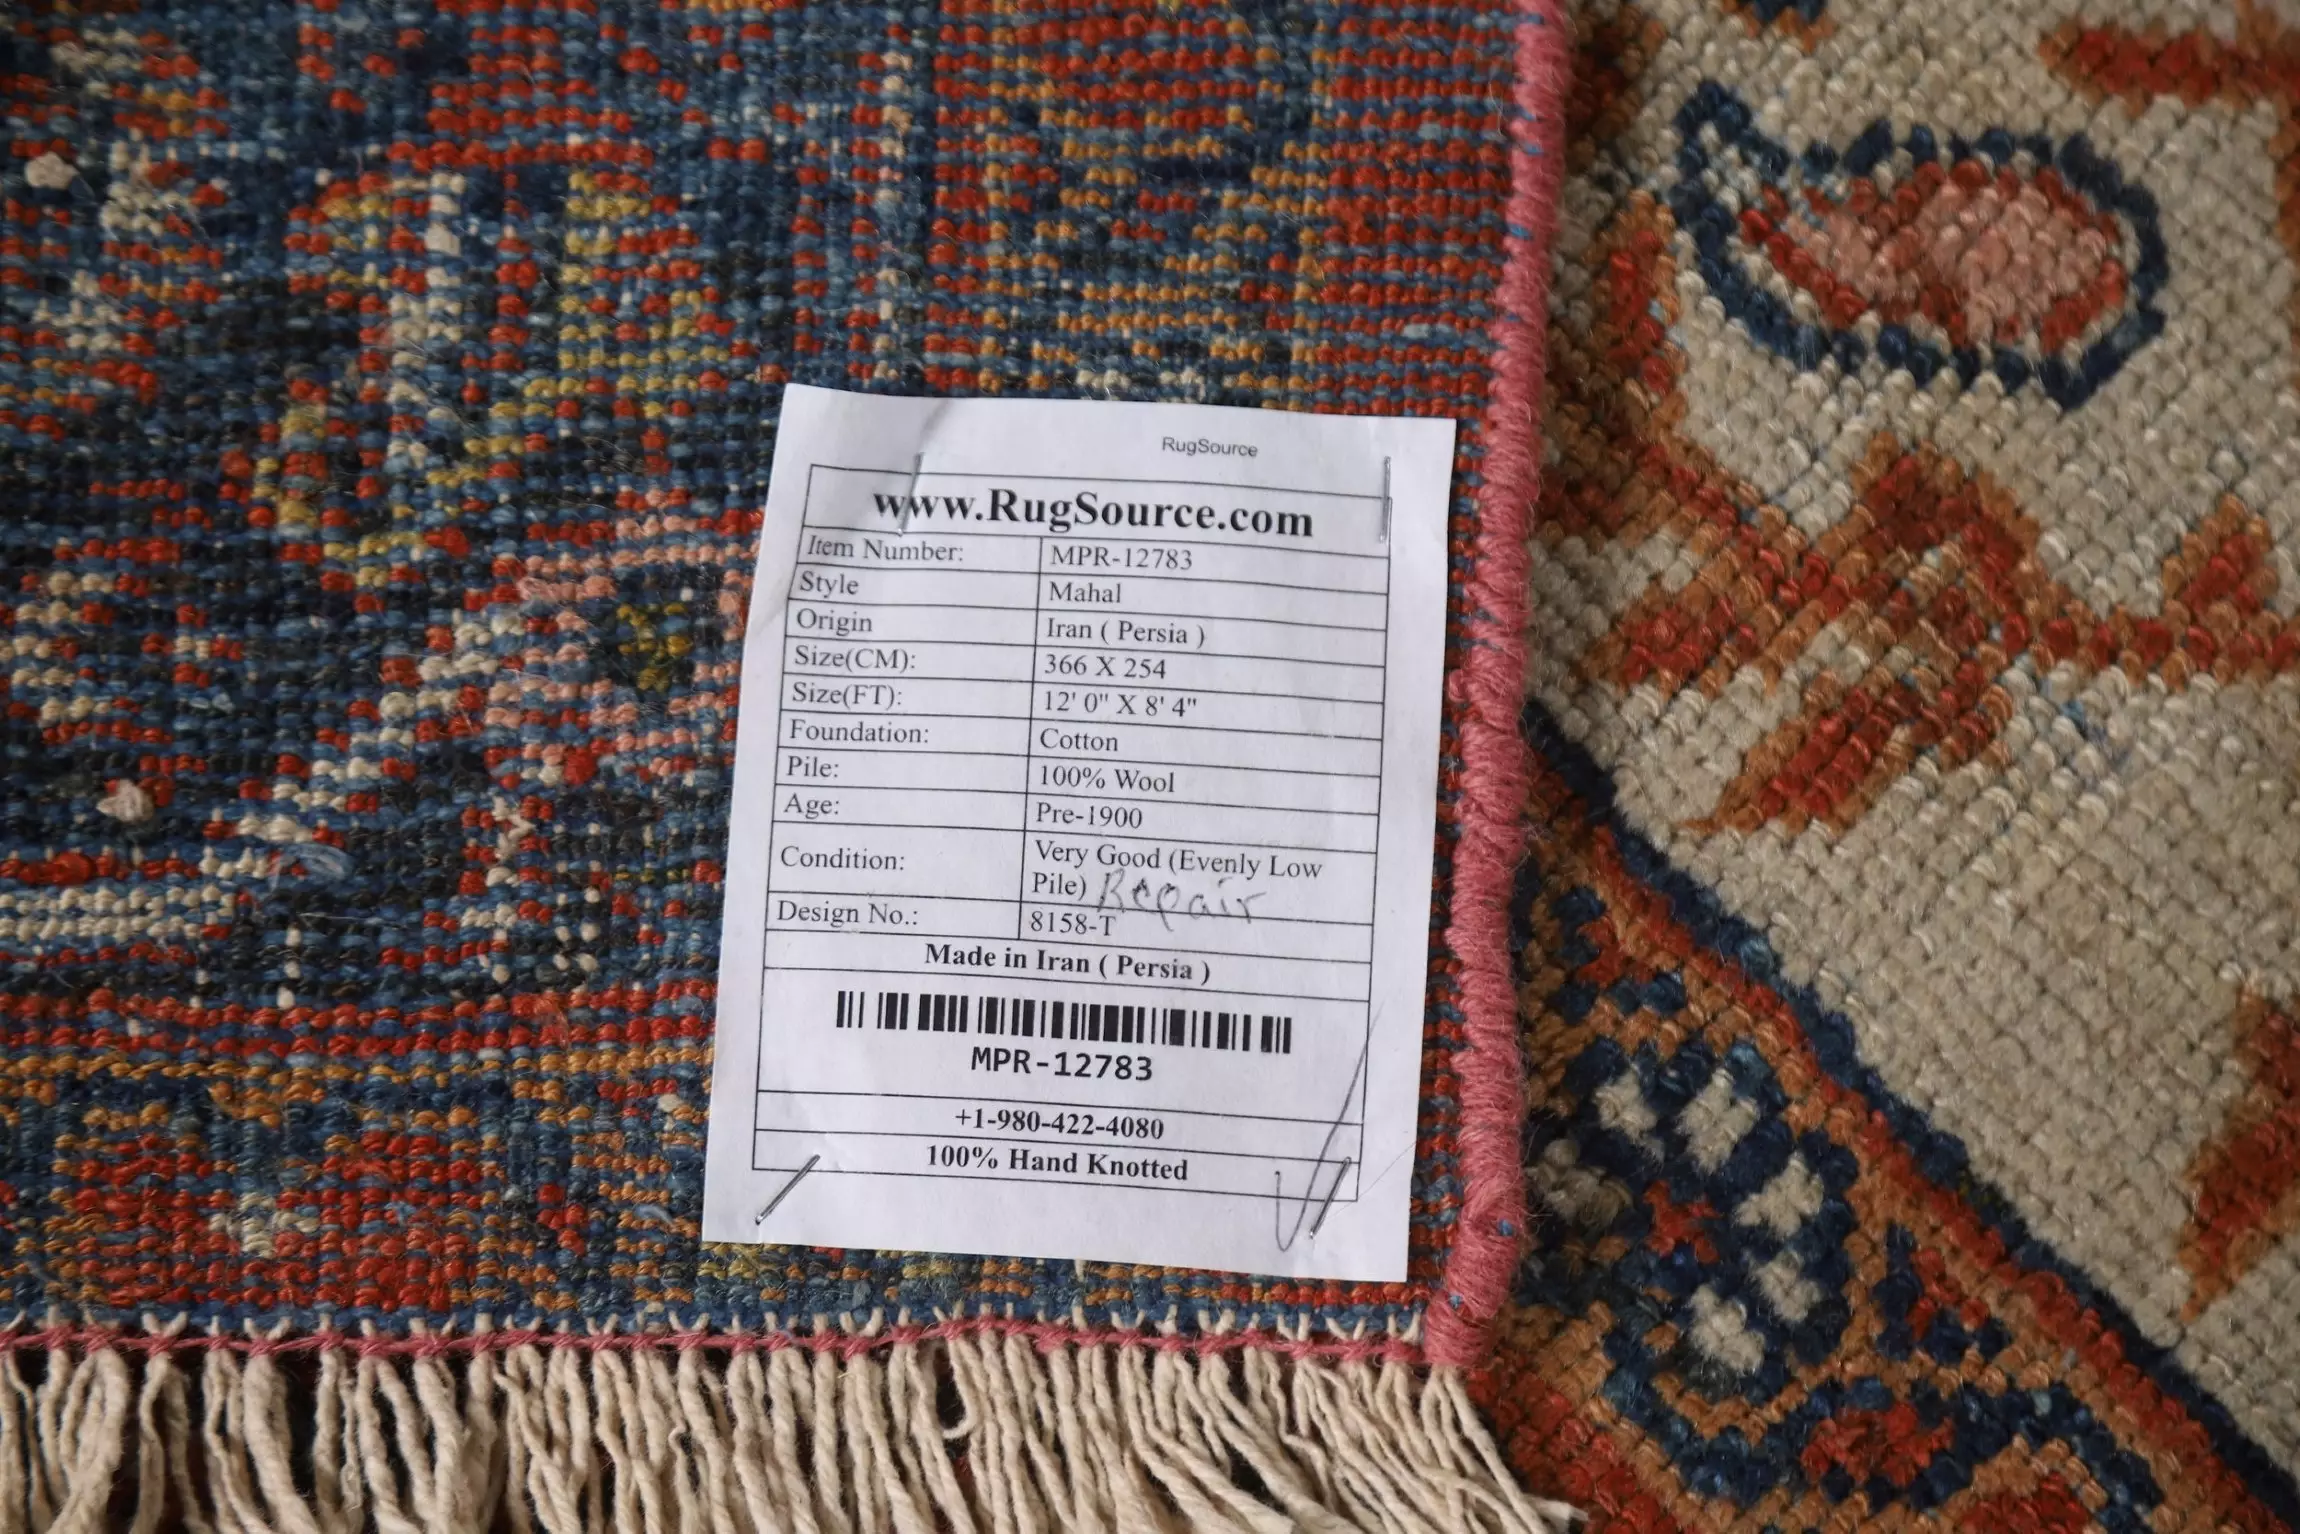 RugSource
www.RugSource.com
Item Number: MPR-12783
Style Mahal
Origin Iran ( Persia )
Size(CM): 366 X 254
Size(FT): 12' 0" X 8' 4"
Foundation: Cotton
Pile: 100% Wool
Age: Pre-1900
Condition: Very Good (Evenly Low
Pile) Repair
Design No.: 8158-T
Made in Iran ( Persia )
MPR-12783
+1-980-422-4080
100% Hand Knotted